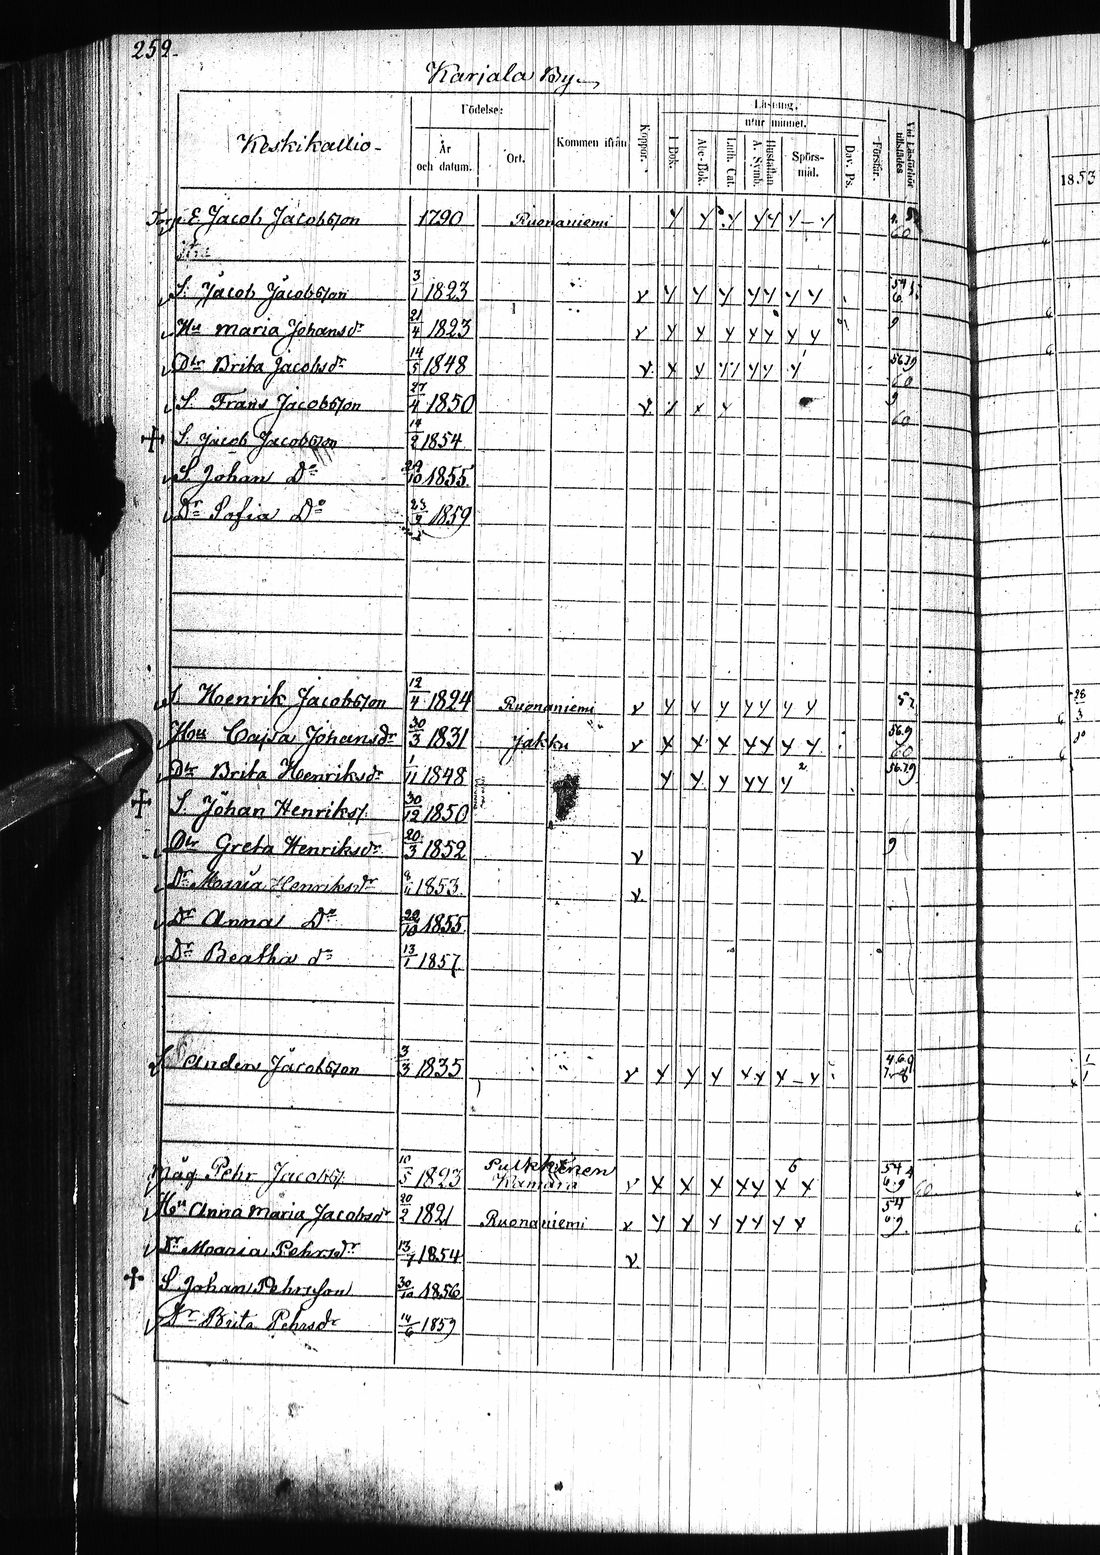 259.
Karjala By
Keskikallio
Födelse:
År och datum.
Ort.
Kommen ifrån
Koppor.
Läsning,
utur minnet.
I Bok.
Abc-Bok.
Luth. Cat.
Hustaflan A. Symb.
Spörs-mål.
Dav. Ps.
Förstår.
Vid Läsförhör tillstädes
1853
Torp. E. Jacob Jacobsson 1790 Ruonaniemi y y y y y y - y 60
S. Jacob Jacobsson 3/1 1823 " v y y y y y y y 54
Hu Maria Johansdr 21/4 1823 v y y y y y y y 9
Dtr Brita Jacobsdr 14/5 1848 v y y y y y y y 56.79 60
S. Frans Jacobsson 27/4 1850 v y y y 9 60
S. Jacob Jacobsson 14/2 1854
S. Johan Do 29/10 1855
Dr Sofia Do 23/9 1859
S. Henrik Jacobsson 12/4 1824 Ruonaniemi v y y y y y y y 57
Hu Cajsa Johansdr 30/3 1831 Jakku v y y y y y y y 56.9 60
Dtr Brita Henriksdr 1/11 1848 y y y y y y 2 56.79
S. Johan Henrikss. 30/12 1850
Dtr Greta Henriksdr 20/3 1852 v 9
Dr Maria Henriksdr 8/11 1853 v
Dr Anna Do 1855
Dr Beatha do 13/1 1857
S. Anders Jacobsson 3/3 1835 " v y y y y y y - y 4.6.9
Måg Pehr Jacobss. 10/5 1823 Pulkkinen Kamara v y y y y y y y 6 54 6.9 60
Hu Anna Maria Jacobsdr 20/2 1821 Ruonaniemi v y y y y y y y 54 69
Dr Maria Pehrsdr 13/7 1854 v
S. Johan Pehrsson 30/10 1856
Dr Brita Pehrsdr 14/6 1859